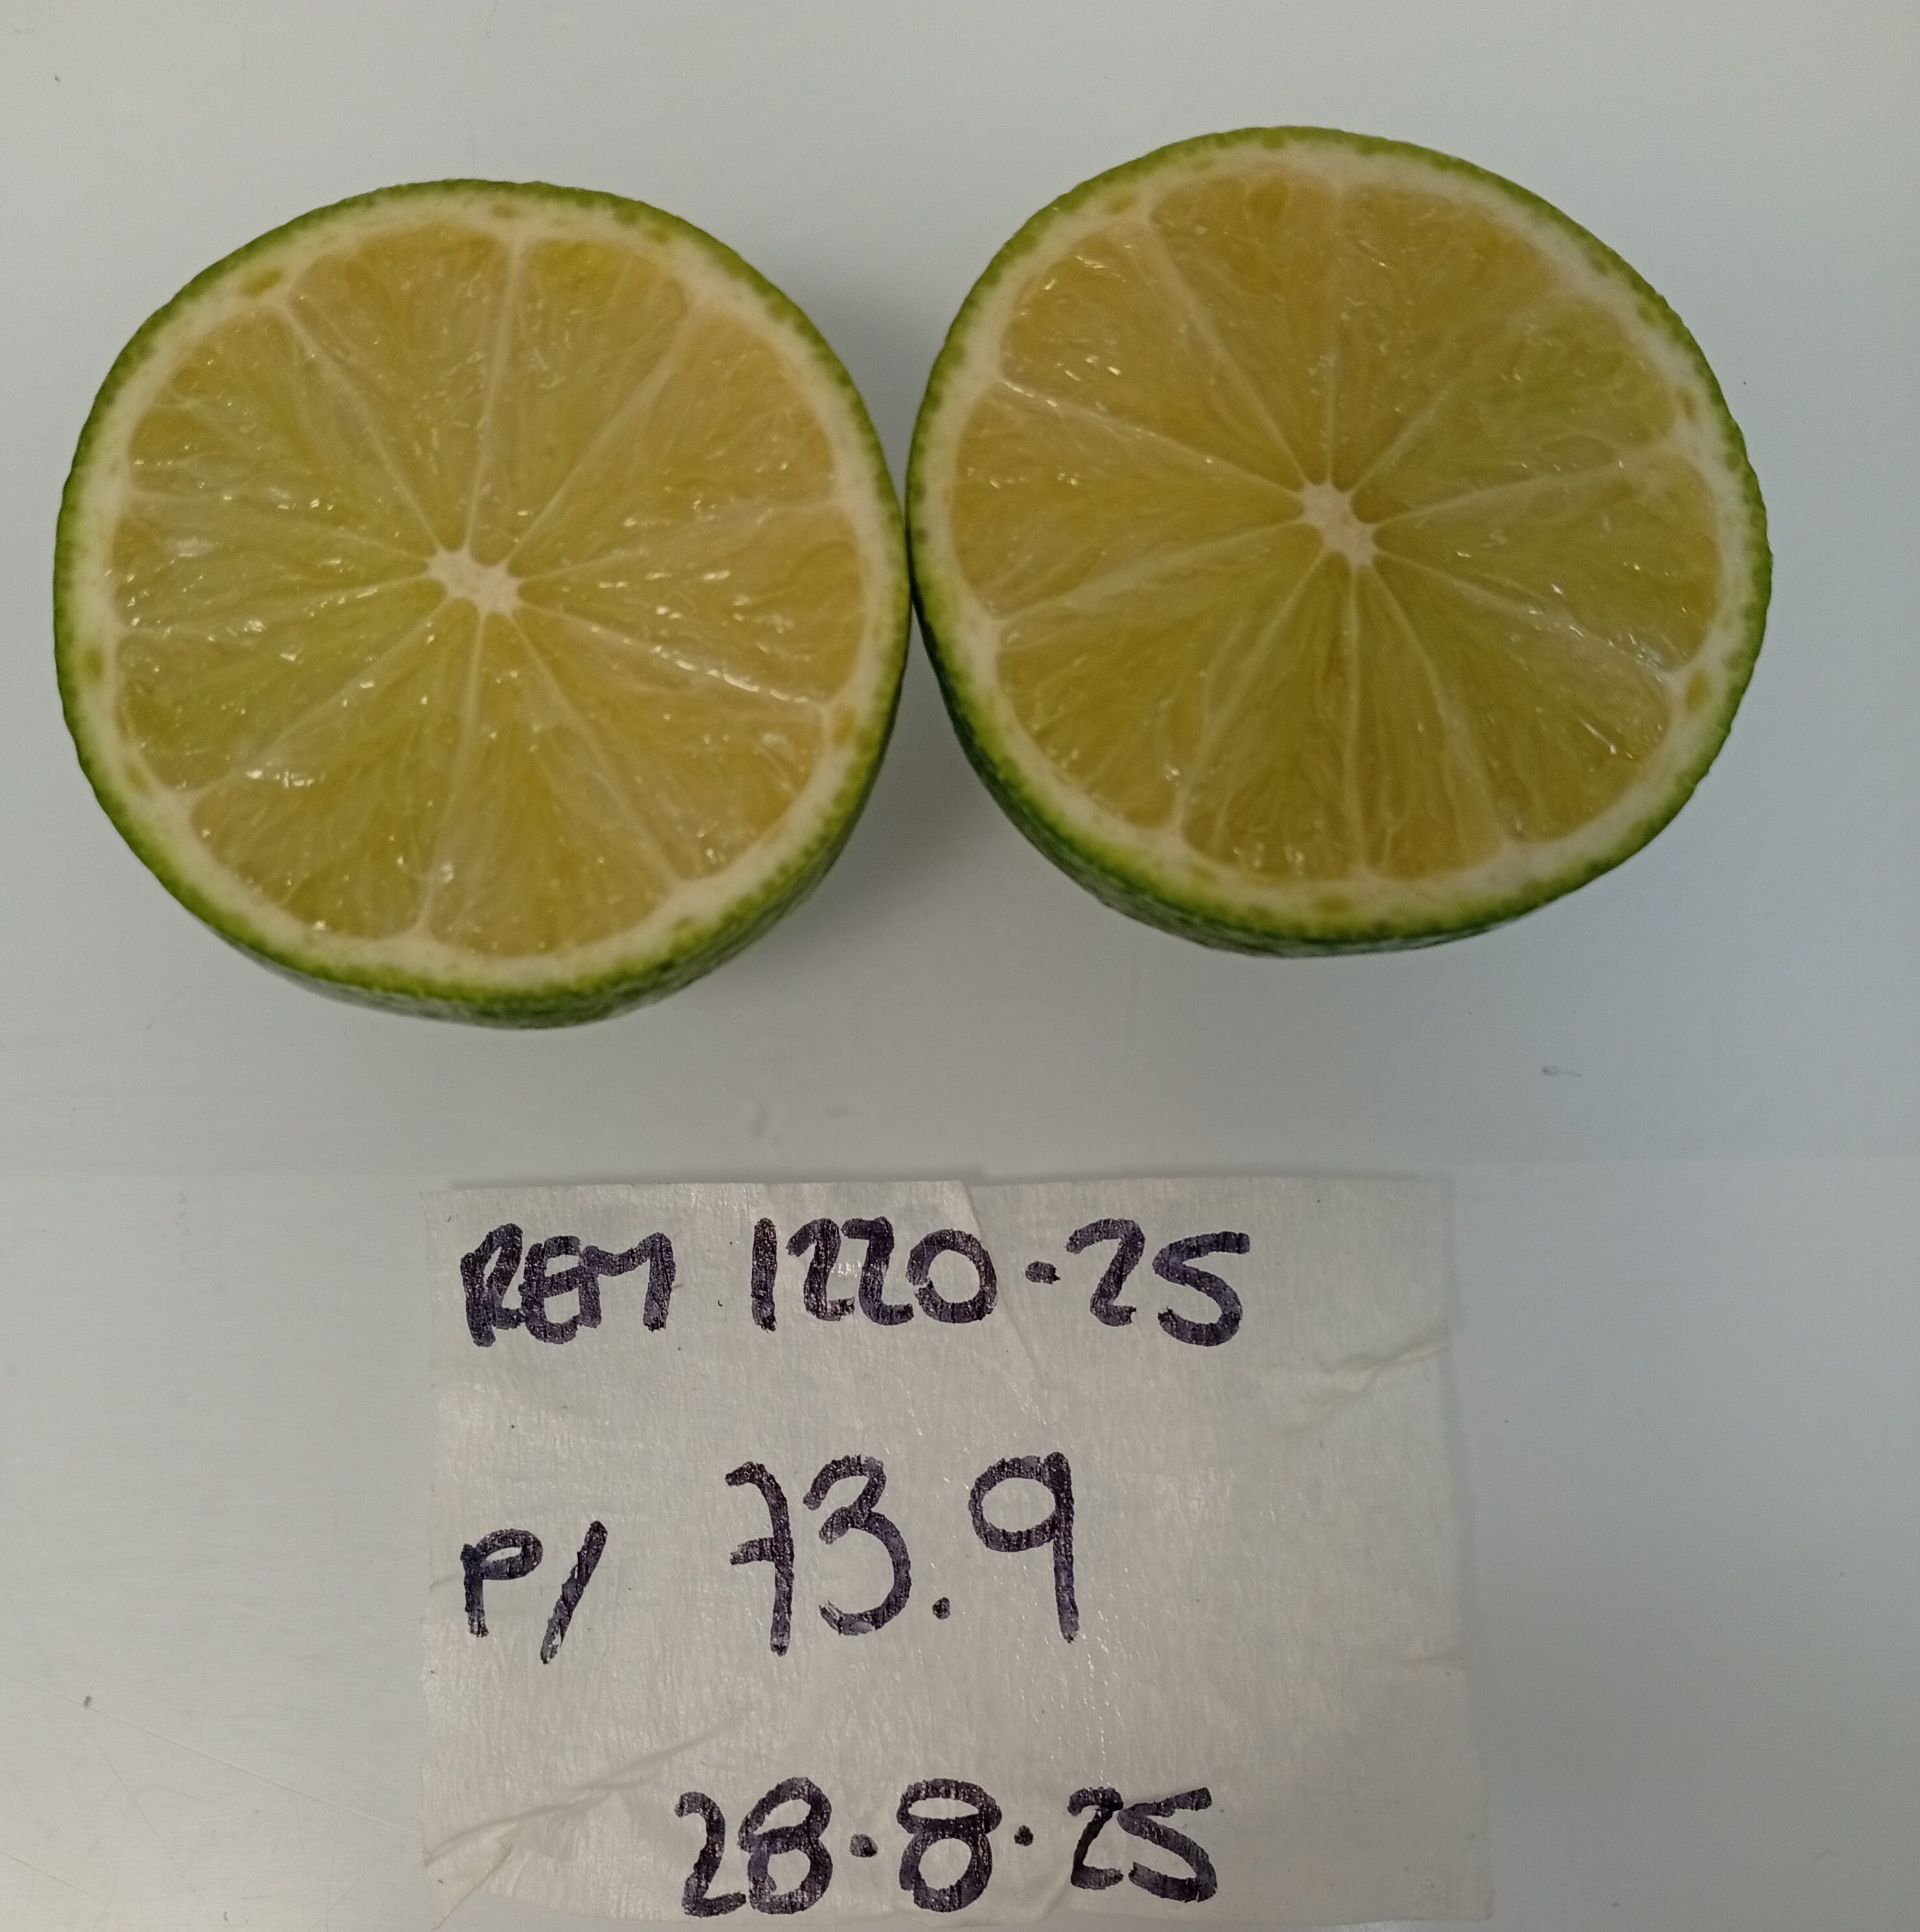 REM 1220-25
P/ 73.9
28.8.25